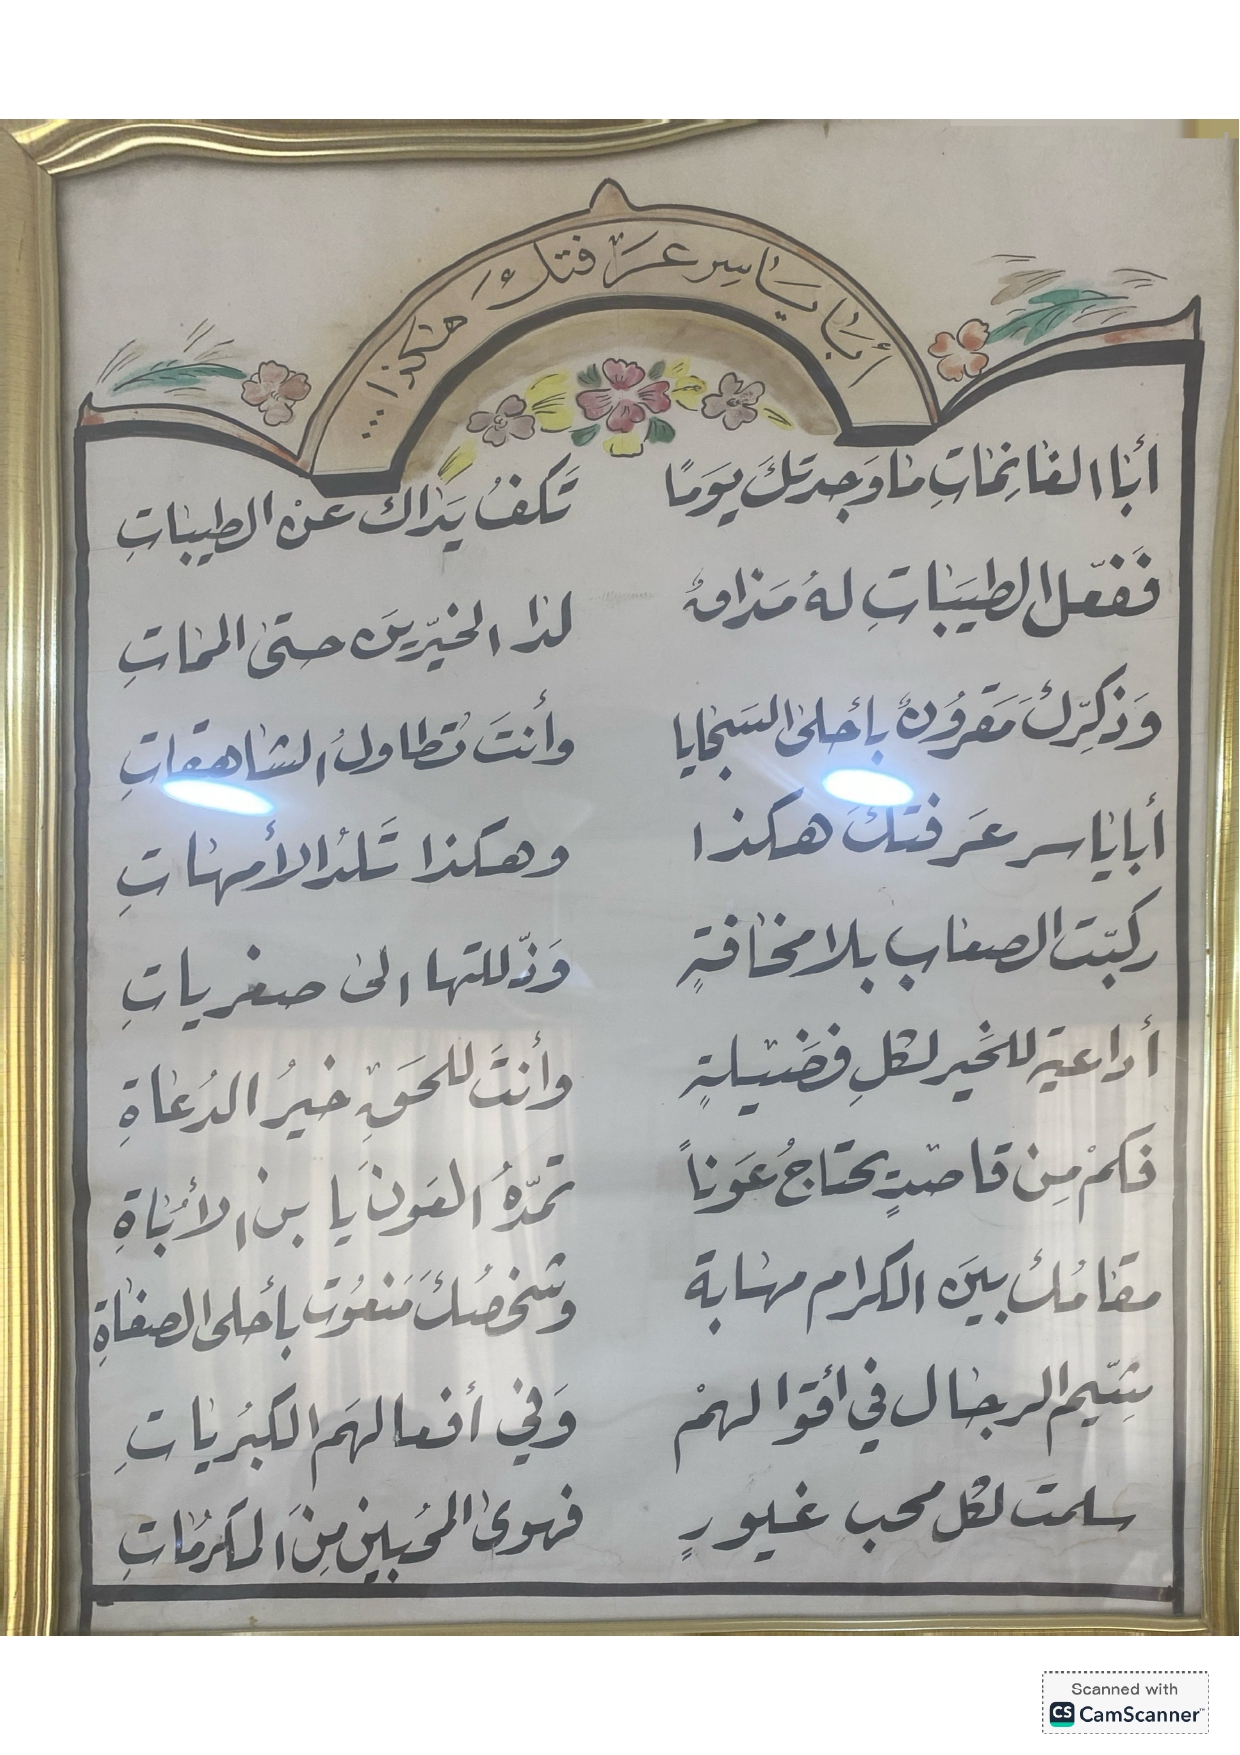 أبا ياسر عرفتك هكذا...
أبا الغانمات ما وجدتك يومًا تكفُ يداك عن الطيباتِ
ففعل الطيباتِ له مذاقٌ لذا الخيّرين حتى المماتِ
وذكرك مقرونٌ بأحلى السجايا وأنت تطاول الشاهقاتِ
أبا ياسر عرفتك هكذا وهكذا تلدُ الأمهاتِ
ركبت الصعاب بلا مخافةٍ وذللتها الى صغرياتِ
أداعية للخير لكلِ فضيلةٍ وأنت للحقِ خيرُ الدُعاةِ
فكم من قاصدٍ يحتاجُ عوناً تمدّهُ العون يا بن الأُباةِ
مقامُك بين الكرام مهابة وشخصُك منعوت بأحلى الصفاةِ
شيم الرجال في أقوالهمْ وفي أفعالهم الكبرياتِ
سلمت لكل محب غيورٍ فهوى المحبين من المكرماتِ
Scanned with
CS CamScanner